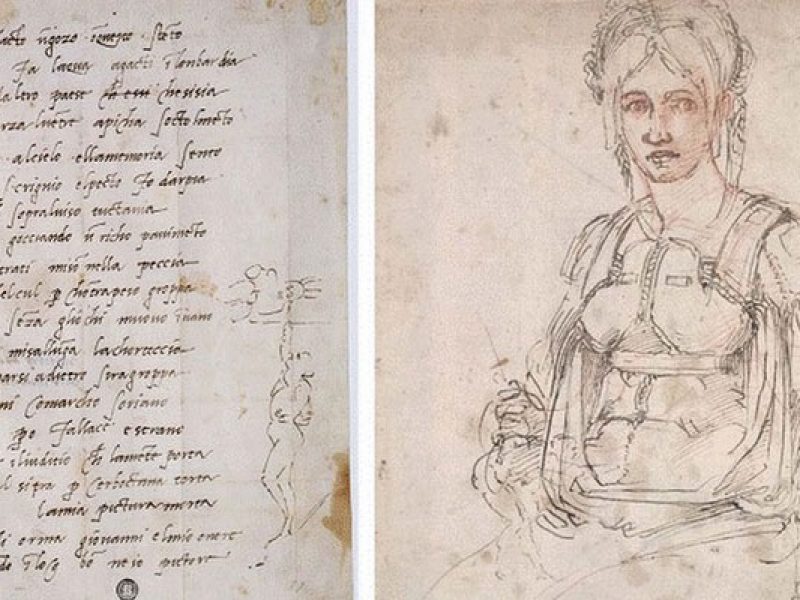 acto ūgozo
fa lacqua agacti ī lonbardia
altro paese che sisia
orza luētre apicha socto lmēto
alcielo ellamemoria sento
scrignio elpecto fo darpia
sopraluiso tuctauia
gocciando ū richo pauimēto
trati miso nella peccia
elcul p chōtrapeso groppa
sēza gliochi muouo īuano
misallūga lachorteccia
arsi adietro siragroppa
ni comarcho soriano
po fallace e strano
il iuditio ch̄ lamēte porta
l si tra p cerboctana torta
lamia pictura morta
di orma giouanni elmio onore
do ī bō ne io pictore